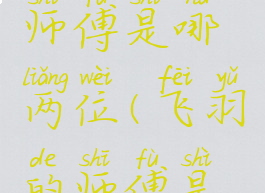 shī fù shì nǎ
师傅是哪
liǎng wèi fēi yǔ
两位(飞羽
de shī fù shì
的师傅是